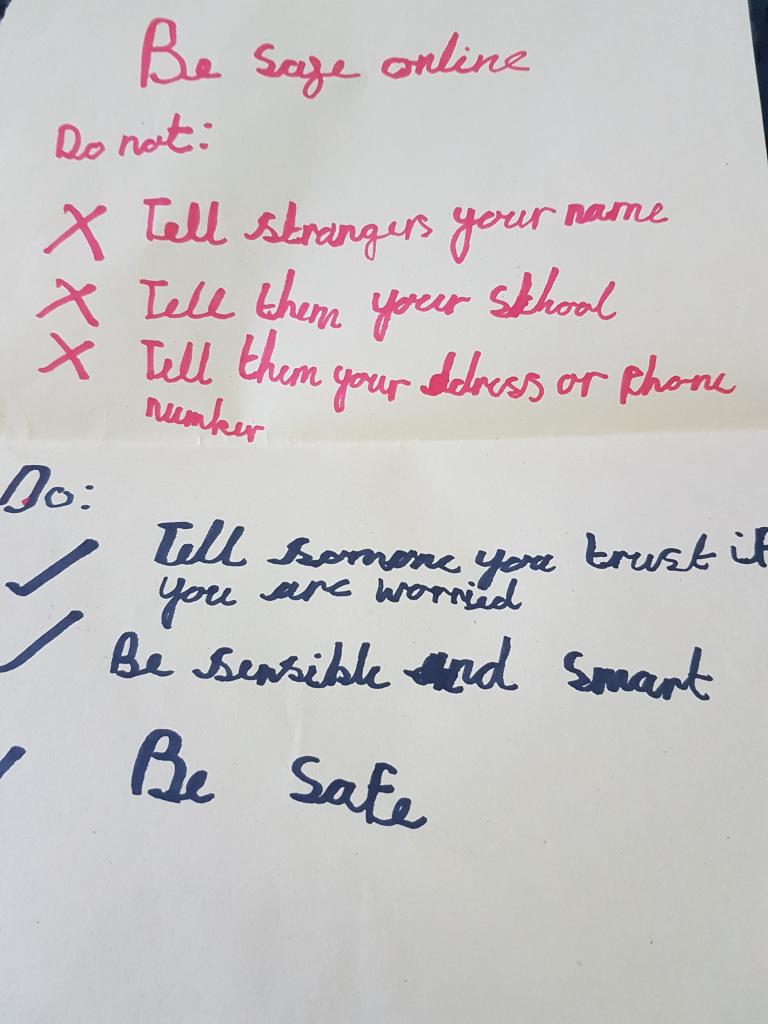 Be safe online
Do not:
X Tell strangers your name
X Tell them your school
X Tell them your address or phone
number
Do:
✓ Tell somone you trust if
you are worried
✓ Be sensible and smart
✓ Be safe